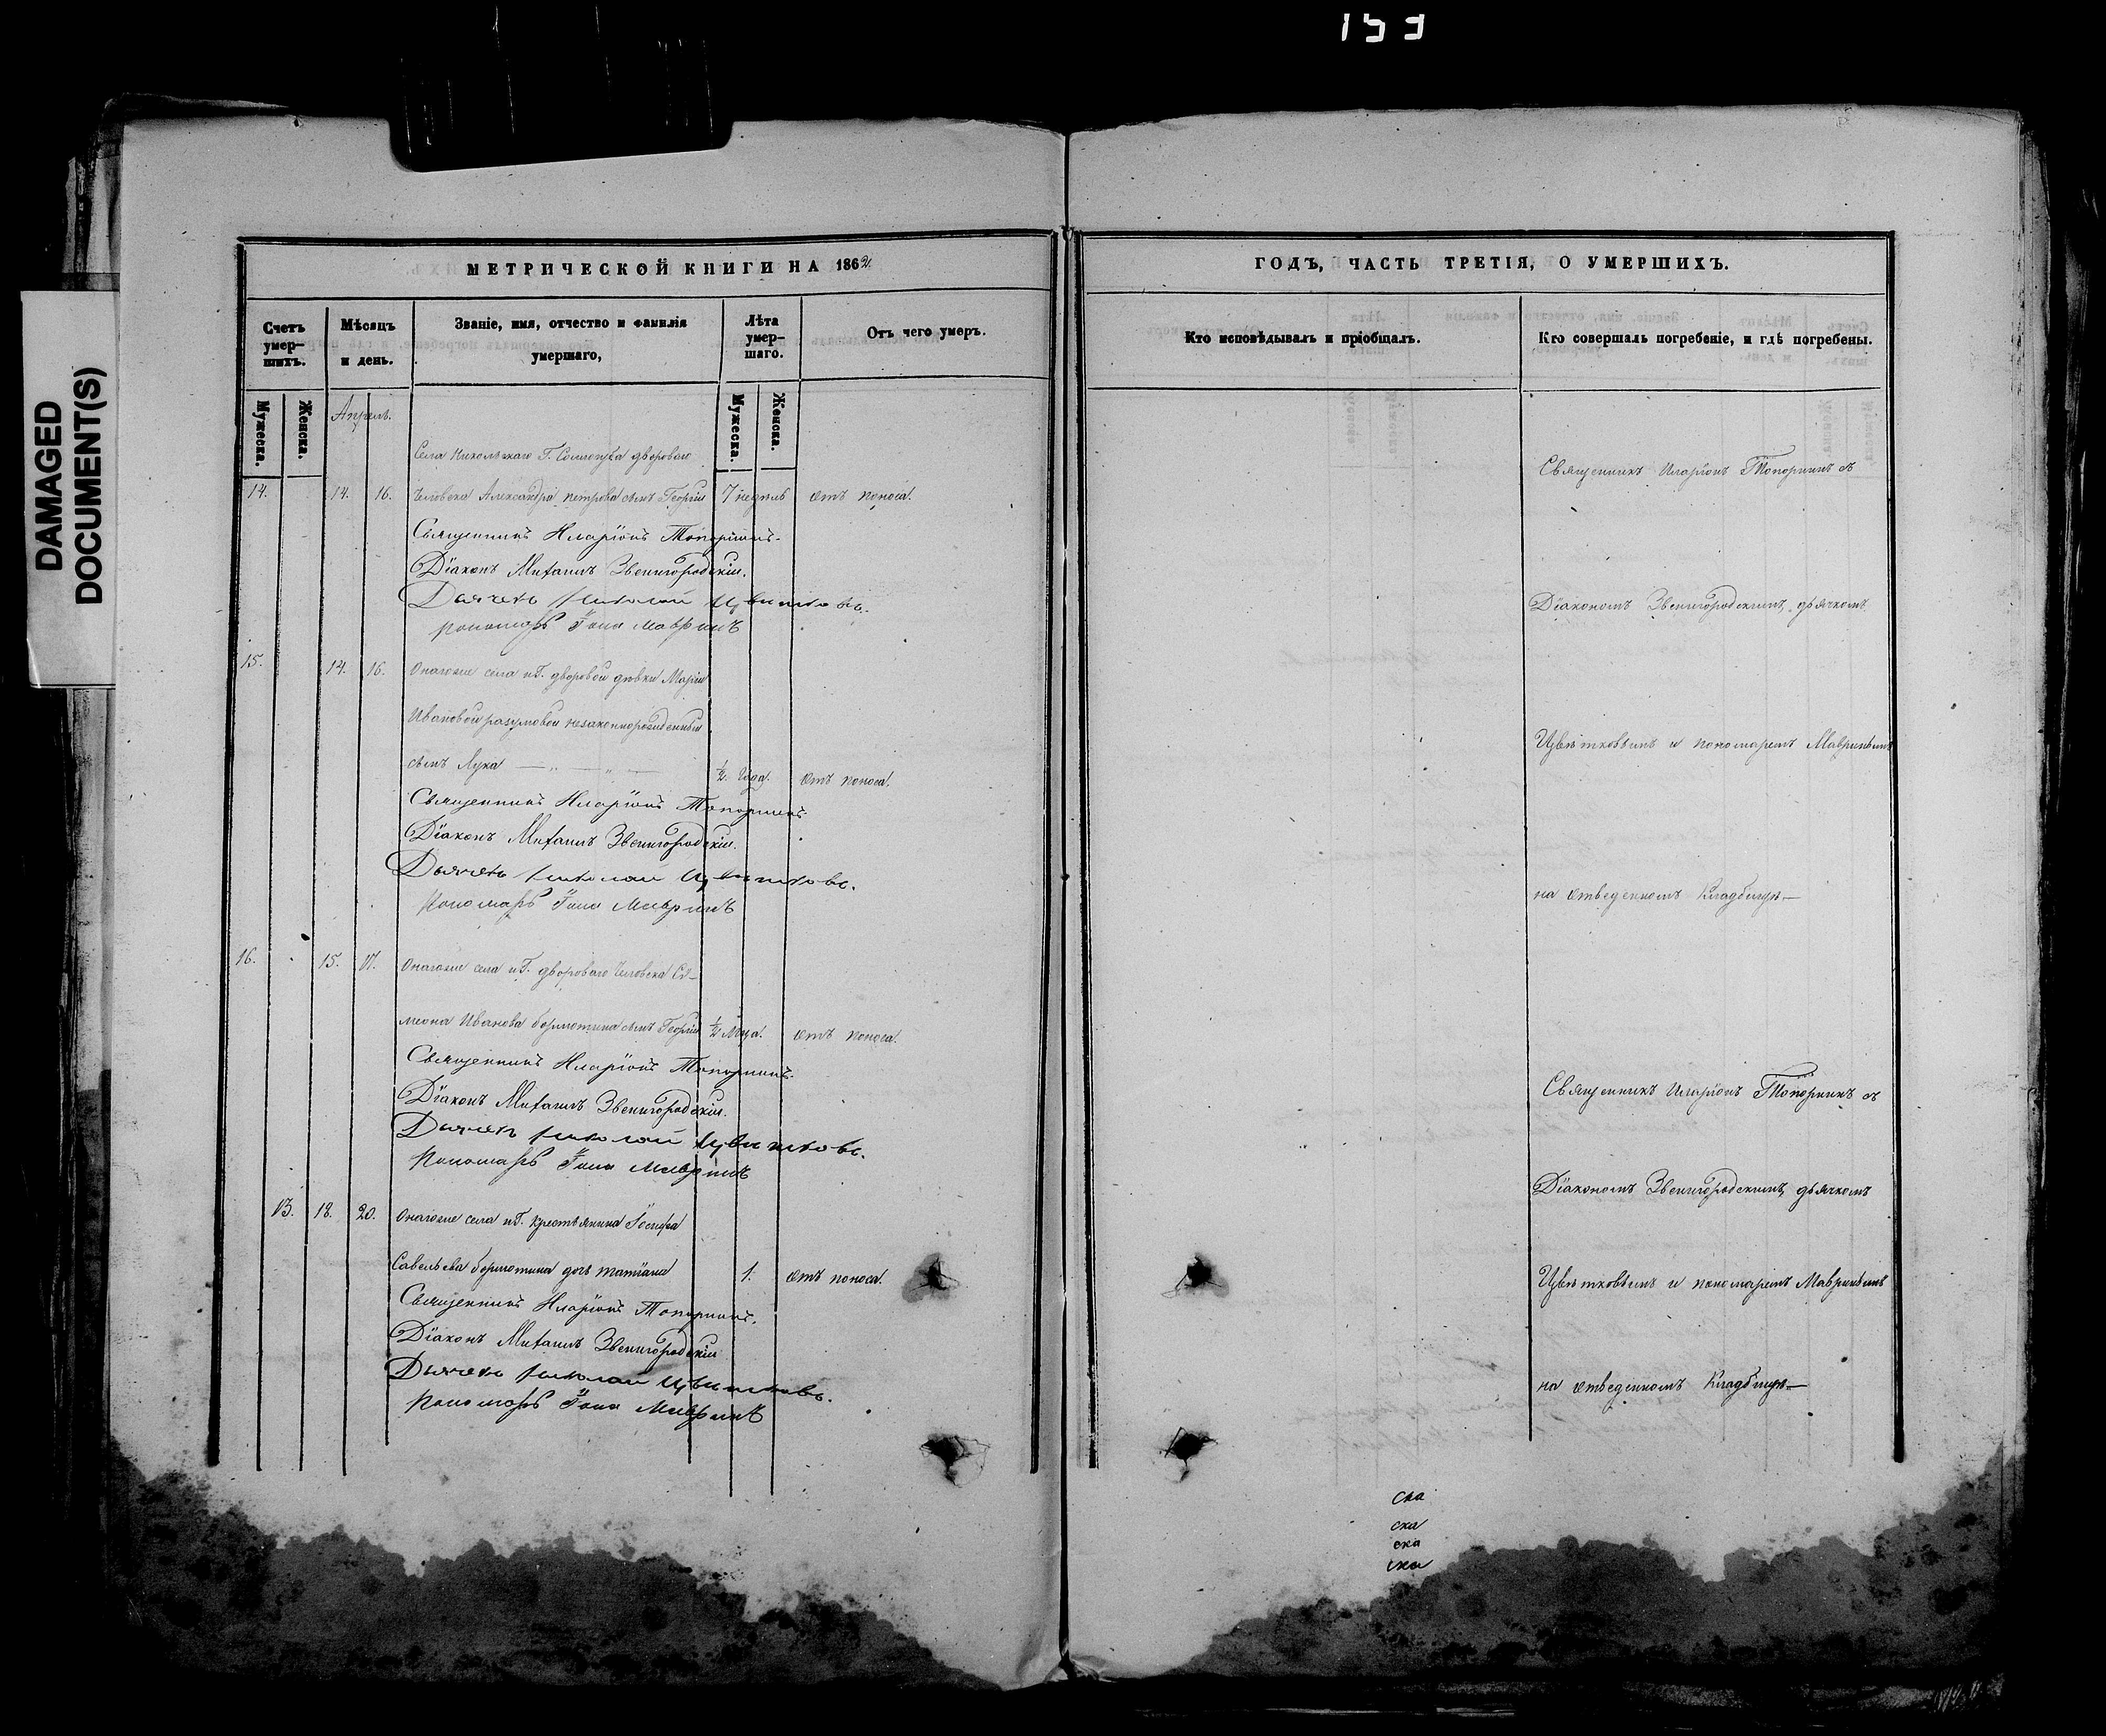 153
DAMAGED
DOCUMENT(S)
МЕТРИЧЕСКОЙ КНИГИ НА 1862
Счетъ умер-шихъ.
Мѣсяцъ и день.
Званіе, имя, отчество и фамилія умершаго,
Лѣта умер-шаго.
Отъ чего умеръ.
Мужеска.
Женска.
Мужеска.
Женска.
Апрель.
Села Никольскаго Г. дворового
14. 14. 16. человека Александра петрова сынъ Георгій 7 недѣль отъ поноса.
Священникъ Иларіонъ Топорнинъ.
Діаконъ Михаилъ Звенигородскій.
Дьячекъ Николай Цвѣтковъ.
пономарь Іона Мавринъ
15. 14. 16. Онагоже села и Г. дворовой девки Маріи
Ивановой разумовой незаконнорожденный
сынъ Лука — „ — „ — ½ года. отъ поноса.
Священникъ Иларіонъ Топорнинъ
Діаконъ Михаилъ Звенигородскій.
Дьячекъ Николай Цвѣтковъ.
Пономарь Іона Мавринъ
16. 15. 17. Онагоже села и Г. дворового человека Си-
меона Иванова бормотина сынъ Георгій ½ Мца. отъ поноса.
Священникъ Иларіонъ Топорнинъ.
Діаконъ Михаилъ Звенигородскій.
Дьячекъ Николай Цвѣтковъ.
Пономарь Іона Мавринъ
13. 18. 20. Онагоже села и Г. крестьянина Іосифа
Савельева бормотина дочь татіана 1. отъ поноса.
Священникъ Иларіонъ Топорнинъ.
Діаконъ Михаилъ Звенигородскій
Дьячекъ Николай Цвѣтковъ.
Пономарь Іона Мавринъ
ГОДЪ, ЧАСТЬ ТРЕТІЯ, О УМЕРШИХЪ.
Кто исповѣдывалъ и пріобщалъ.
Кто совершалъ погребеніе, и гдѣ погребены.
Священникъ Иларіонъ Топорнинъ съ
Діакономъ Звенигородскимъ, дьячкомъ
Цвѣтковымъ и пономаремъ Мавринымъ
на отведенномъ Кладбищѣ—
Священникъ Иларіонъ Топорнинъ съ
Діакономъ Звенигородскимъ, дьячкомъ
Цвѣтковымъ и пономаремъ Мавринымъ
на отведенномъ Кладбищѣ—
ска
ска
ска
ска